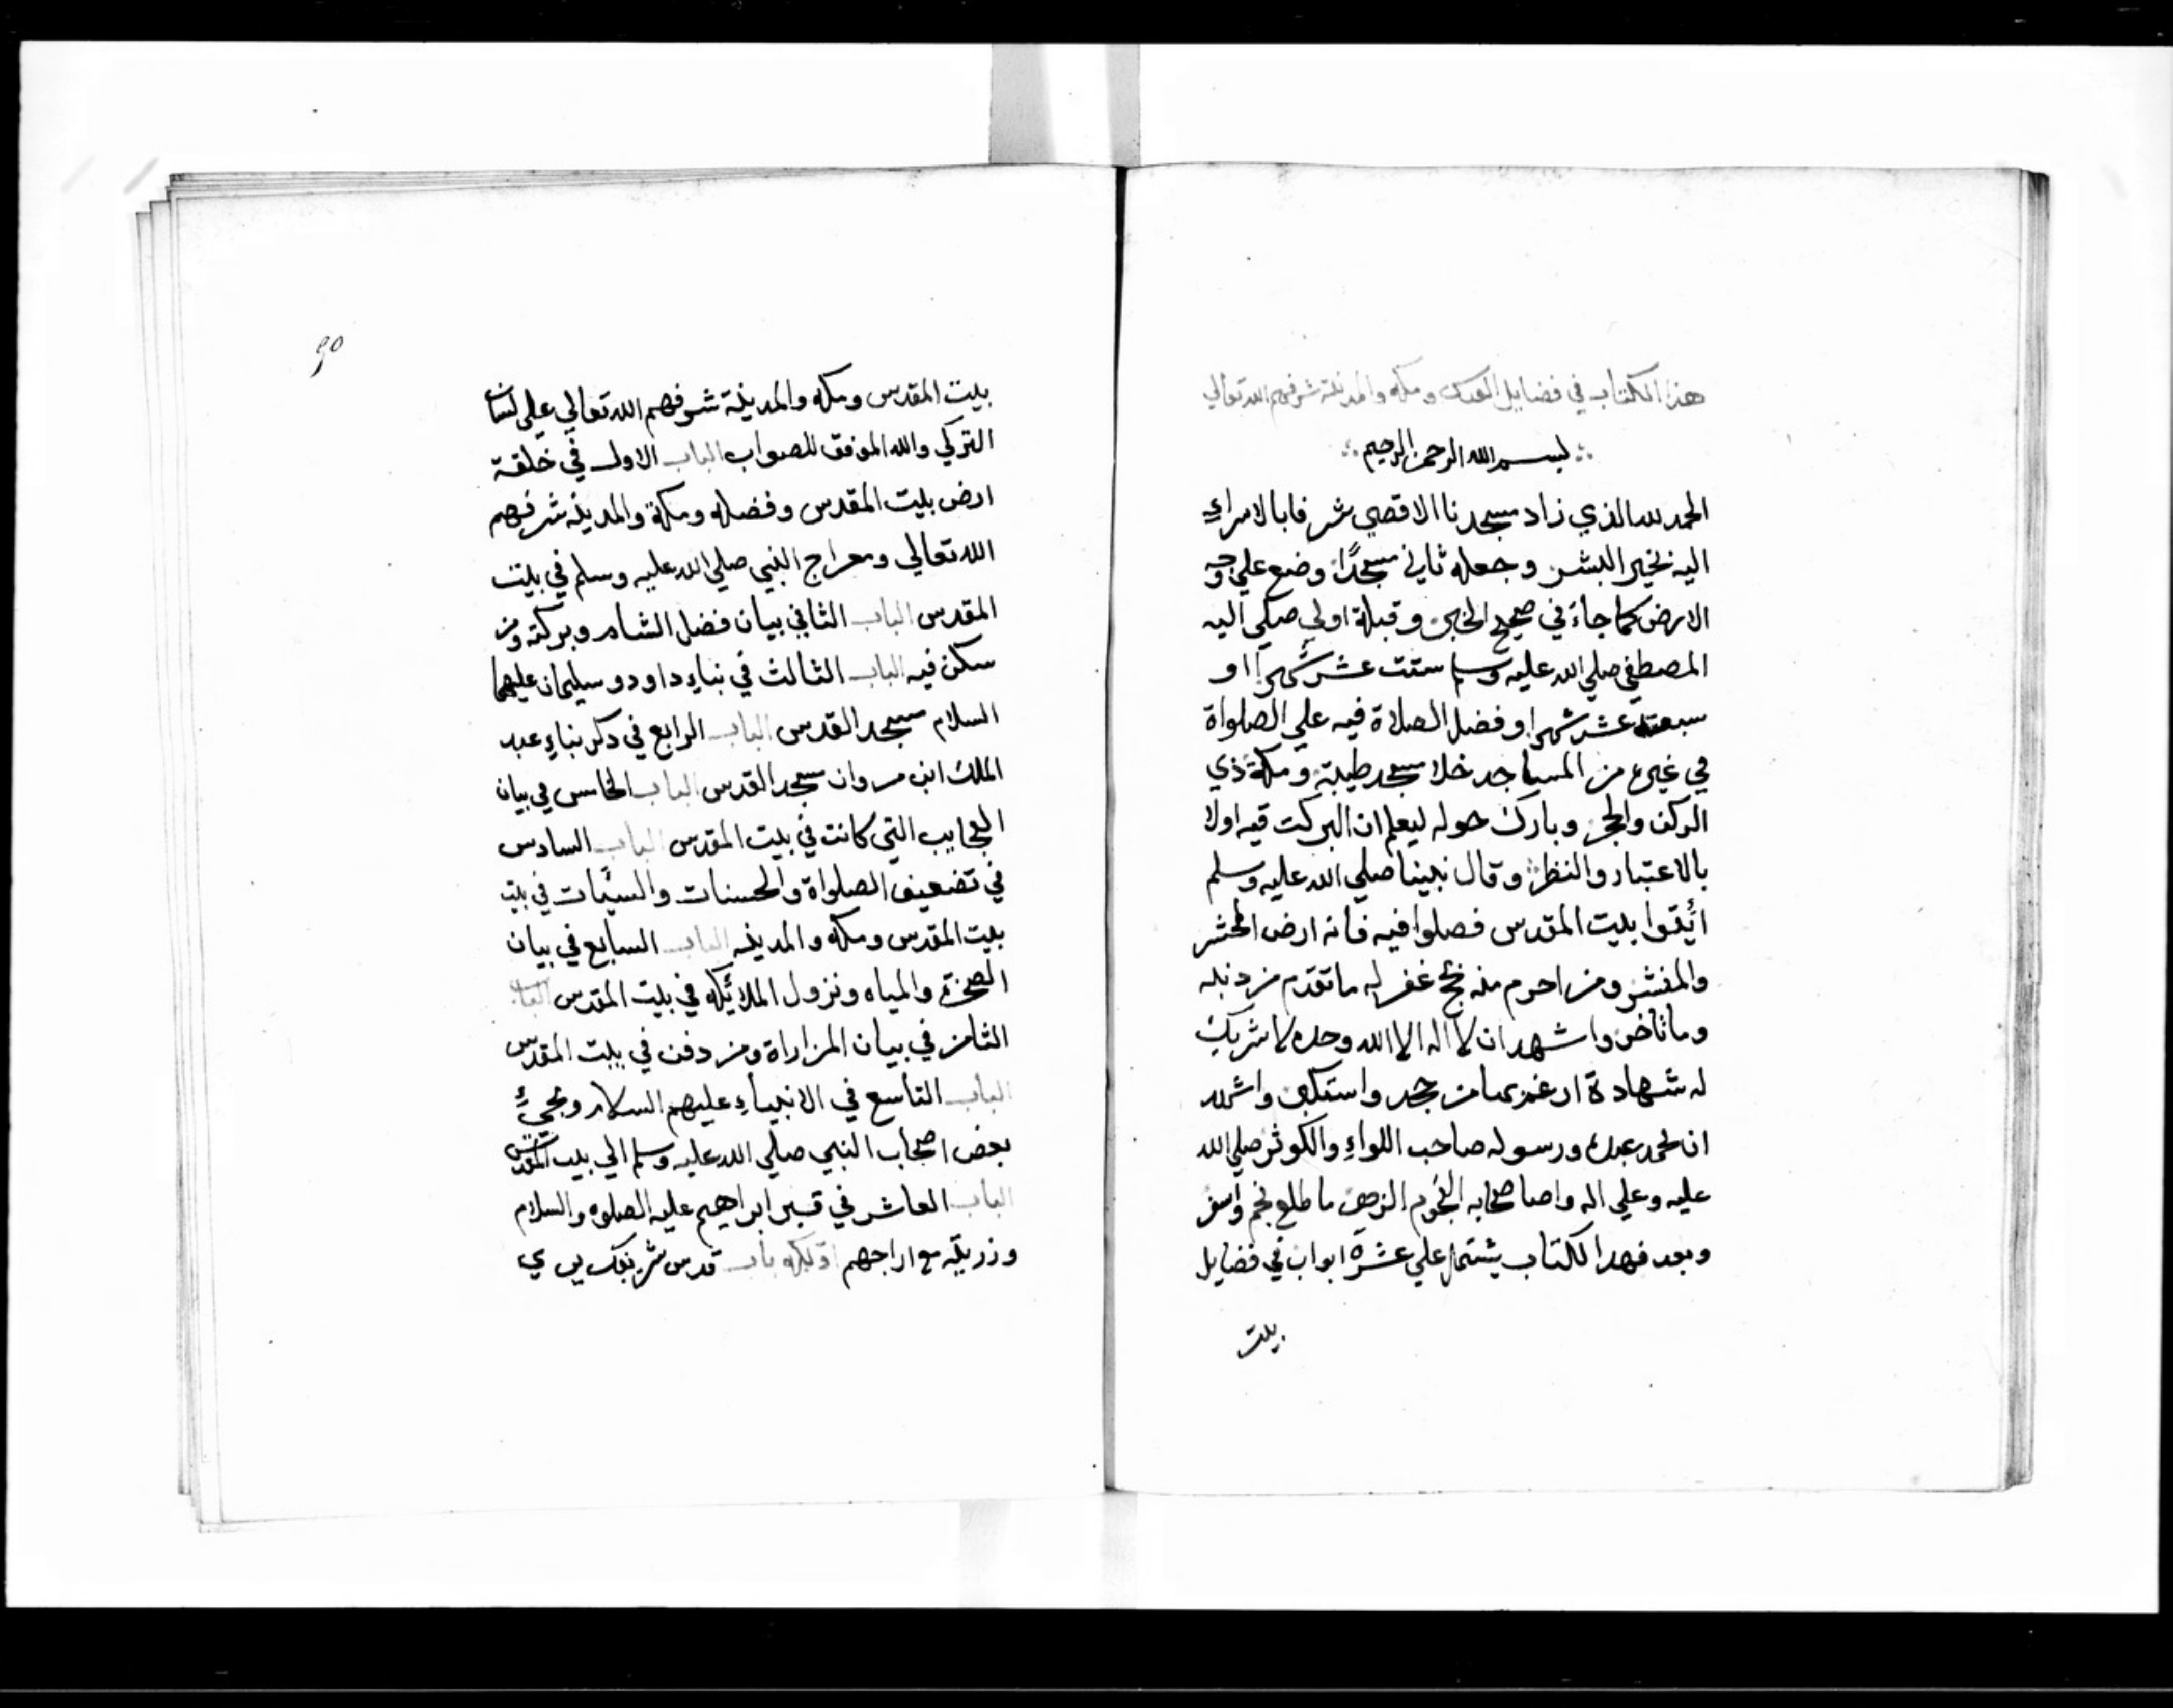 هذا الكتاب في فضايل القدس ومكه والمدينة شرفهم الله تعالي
بسم الله الرحمن الرحيم
الحمد لله الذي زاد مسجدنا الاقصي شرفا بالاسراء
اليه بخير البشر وجعله ثاني مسجدًا وضع علي وجه
الارض كما جاء في صحيح الخبر وقبلة اولي صلي اليه
المصطفي صلي الله عليه وسلم ستت عشر شهرا او
سبعة عشر شهرا وفضل الصلاة فيه علي الصلواة
في غيره من المساجد خلا مسجد طيبة ومكة ذي
الركن والحجر وبارك حوله ليعلم ان البركت فيه اولا
بالاعتبار والنظر وقال نبينا صلي الله عليه وسلم
ائتوا بيت المقدس فصلوا فيه فانه ارض المحشر
والمنشر ومن احرم منه بحج غفر له ما تقدم من دنبه
وما تاخر واشهد ان لا اله الا الله وحده لا شريك
له شهادة ارغم بها من جحد واستكبر واشهد
ان محمد عبده ورسوله صاحب اللواء والكوثر صلي الله
عليه وعلي اله واصاصحابه النجوم الزهر ما طلع نجم واسفر
وبعد فهدا الكتاب يشتمل علي عشرة ابواب في فضايل
بيت
٩٥
بيت المقدس ومكه والمدينة شرفهم الله تعالي علي لسان
التركي والله الموفق للصواب الباب الاول في خلقة
ارض بيت المقدس وفضله ومكة والمدينه شرفهم
الله تعالي ومعراج النبي صلي الله عليه وسلم في بيت
المقدس الباب الثاني بيان فضل الشام وبركته ومن
سكن فيه الباب الثالث في بناء داود وسليمان عليهما
السلام مسجد القدس الباب الرابع في دكر بناء عبد
الملك ابن مروان مسجد القدس الباب الخامس في بيان
العجايب التي كانت في بيت المقدس الباب السادس
في تضعيف الصلواة والحسنات والسيئات في بيت
بيت المقدس ومكه والمدينه الباب السابع في بيان
الصخرة والمياه ونزول الملائيكه في بيت المقدس الباب
الثامن في بيان المزاراة ومن دفن في بيت المقدس
الباب التاسع في الانبياء عليهم السلام ومجيء
بعض اصحاب النبي صلي الله عليه وسلم الي بيت المقدس
الباب العاشر في قبر ابراهيم عليه الصلوه والسلام
وزريته مع ازاجهم اولكه باب قدس شريفك يي ي